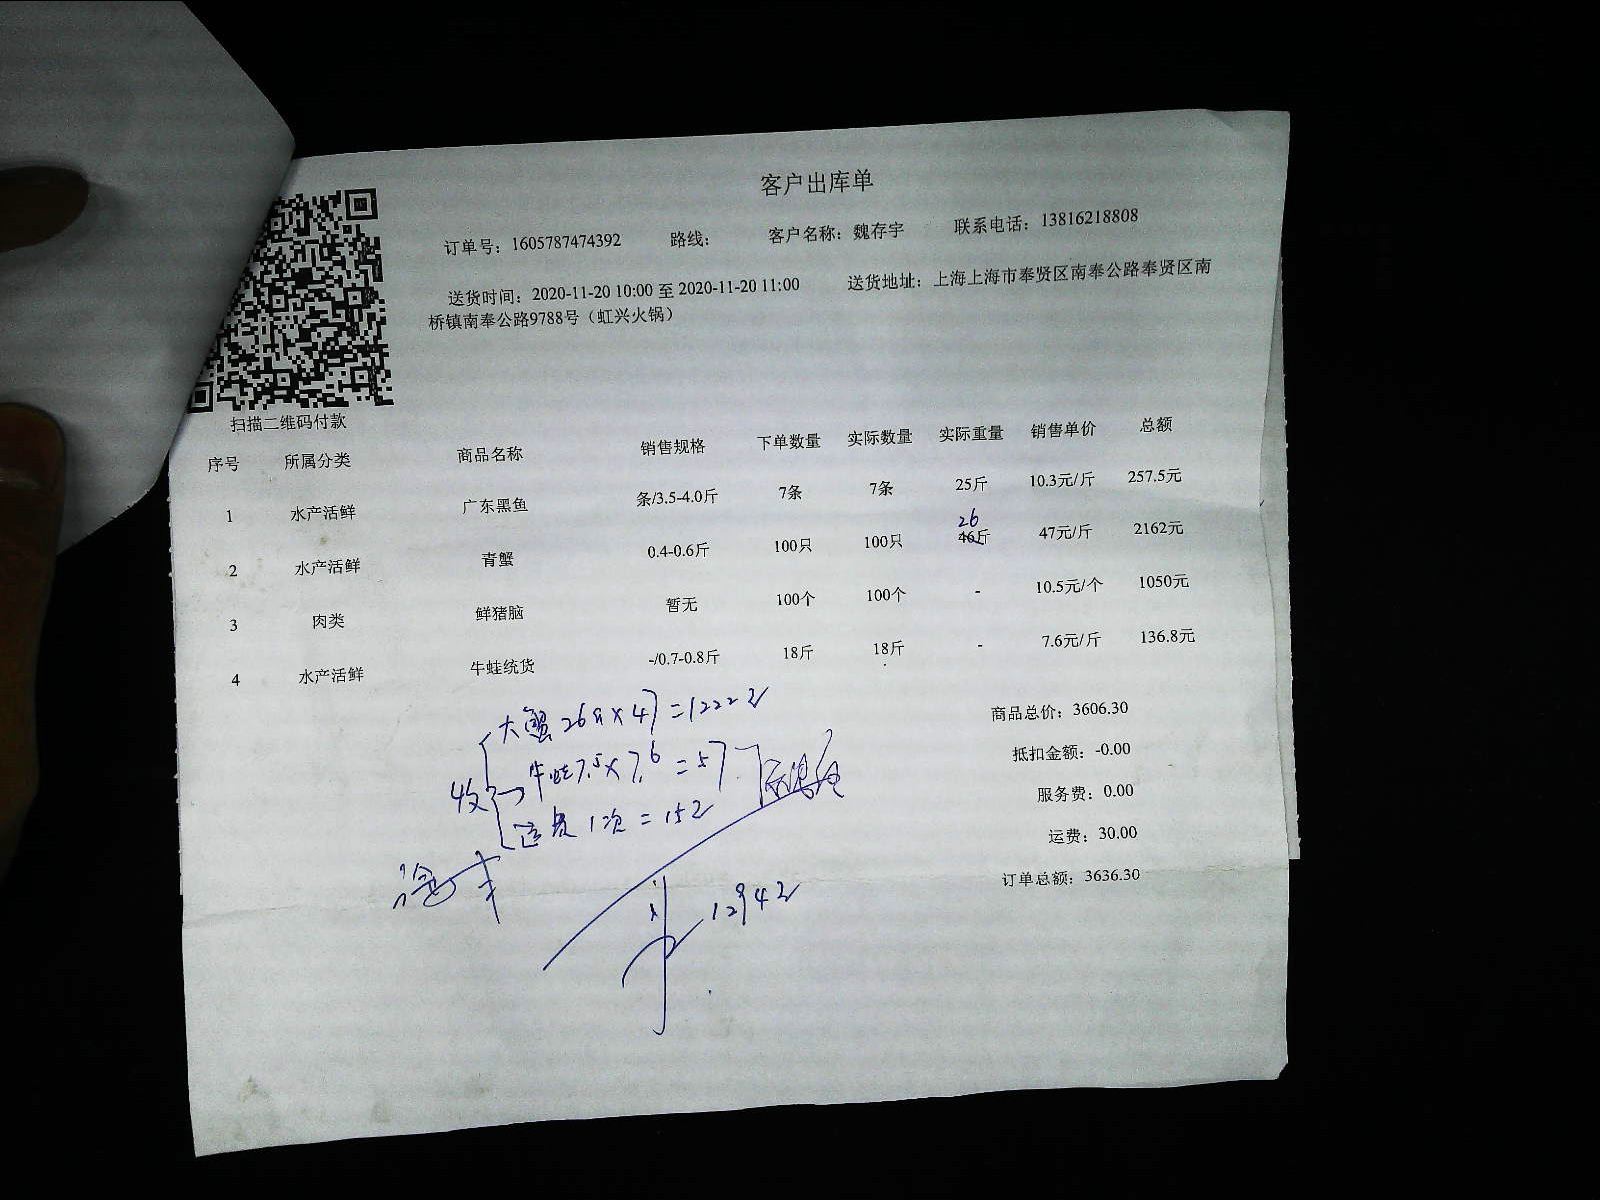 客户出库单
订单号：1605787474392 路线： 客户名称：魏存宇 联系电话：13816218808
送货时间：2020-11-20 10:00 至 2020-11-20 11:00 送货地址：上海上海市奉贤区南奉公路奉贤区南
桥镇南奉公路9788号（虹兴火锅）
扫描二维码付款
序号 所属分类 商品名称 销售规格 下单数量 实际数量 实际重量 销售单价 总额
1 水产活鲜 广东黑鱼 条/3.5-4.0斤 7条 7条 25斤 10.3元/斤 257.5元
26
2 水产活鲜 青蟹 0.4-0.6斤 100只 100只 46斤 47元/斤 2162元
3 肉类 鲜猪脑 暂无 100个 100个 - 10.5元/个 1050元
4 水产活鲜 牛蛙统货 -/0.7-0.8斤 18斤 18斤 - 7.6元/斤 136.8元
商品总价：3606.30
抵扣金额：-0.00
服务费：0.00
运费：30.00
订单总额：3636.30
大蟹26斤×47=1222元
收 牛蛙7.5×7.6=57
运费1次=15元
1294元